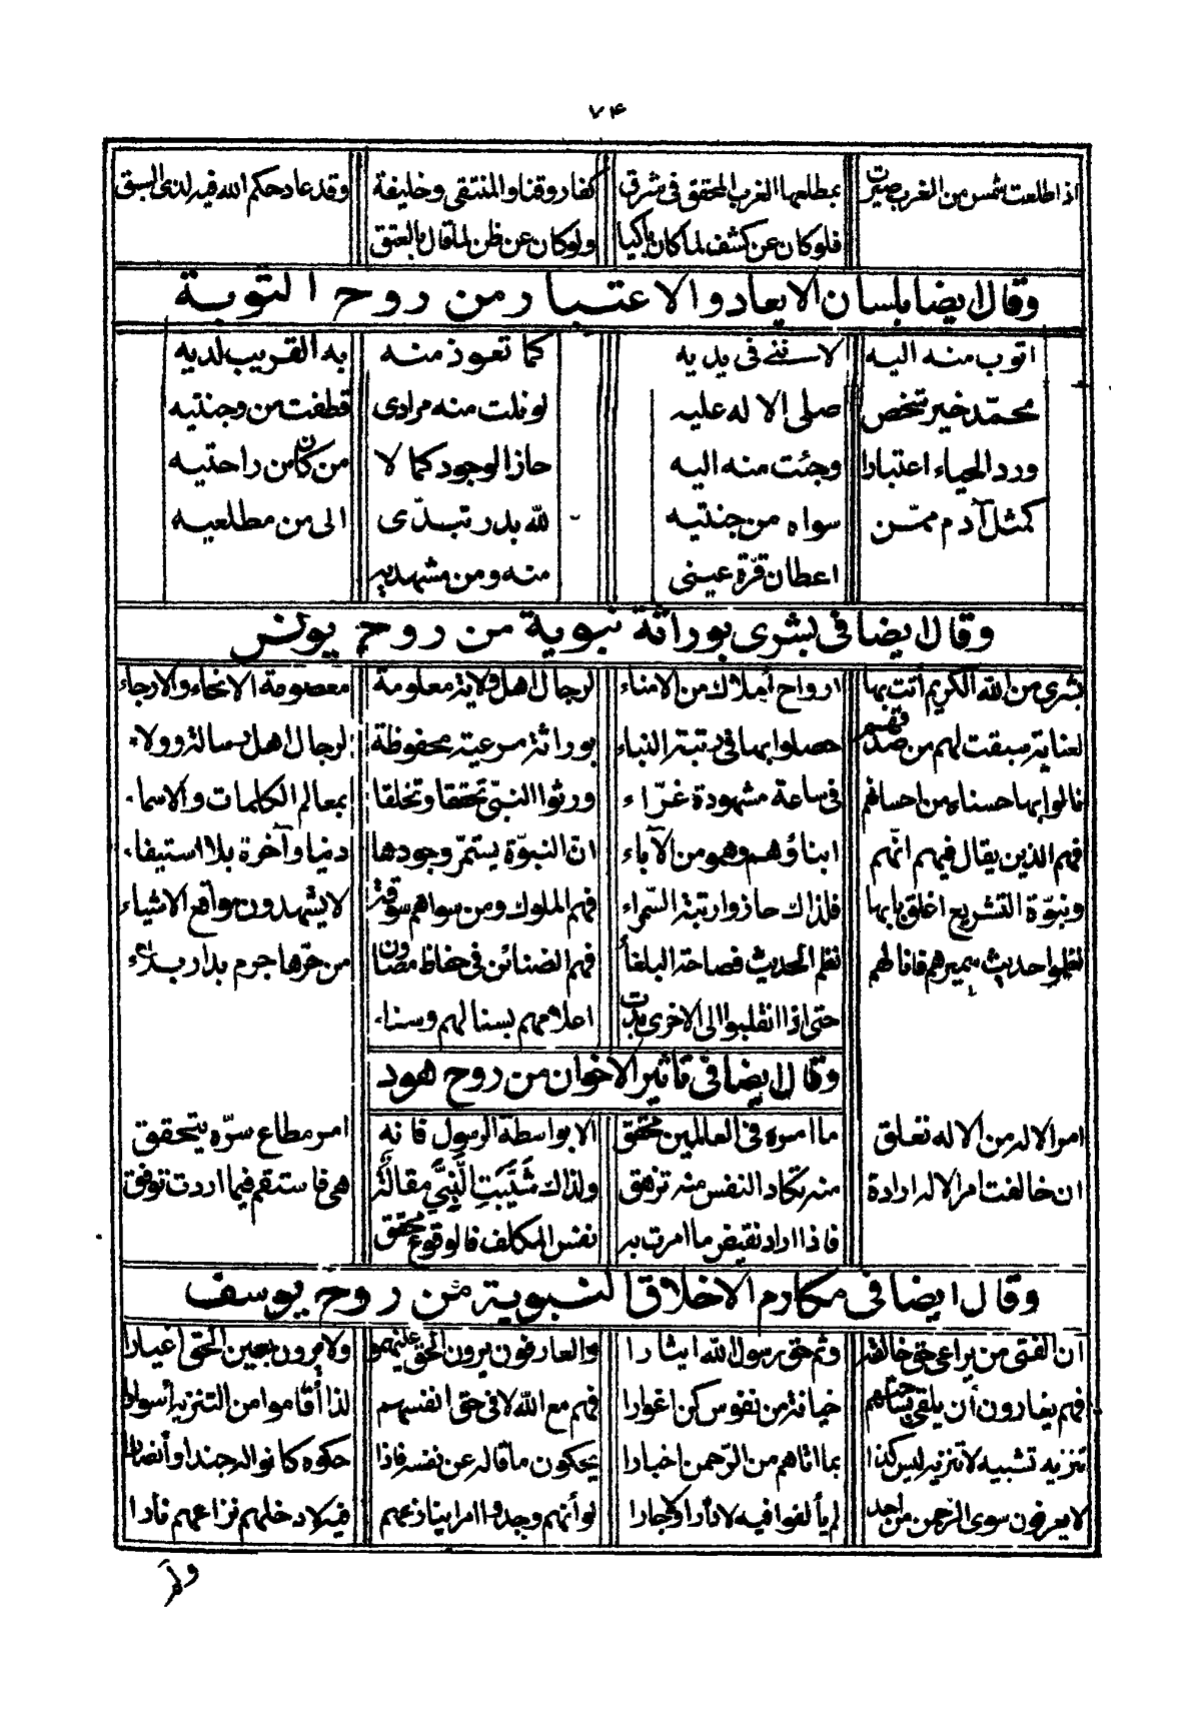 ٧٤
اذا طلعت شمس من الغرب صيرت بمطلعها الغرب المحقق فى شرق كفاروقنا والمنتقى وخليفة وقد عاد حكم الله فيه لذى السبق
فلو كان عن كشف لما كان باكيا ولو كان عن ظن لما قال بالعتق
وقال ايضا بلسان الايعاد والاعتبار من روح التوبة
اتوب منه اليه لاسفنى فى يديه كما تعوذ منه به القريب لديه
محمّد خير شخص صلى الاله عليه لو نلت منه مرادى قطفت من وجنتيه
ورد الحياء اعتبارا وجئت منه اليه حاز الوجود كما لا من كان من راحتيه
كمثل آدم ممّن سواه من جنتيه لله بدر تبدّى الى من مطلعيه
اعطان قرّة عينى منه ومن مشهديه
وقال ايضا فى بشرى بوراثة نبوية من روح يونس
بشرى من الله الكريم أتت بها ارواح أملاك من الامناء لرجال اهل ولاية معلومة معصومة الانحاء والارجاء
لعناية سبقت لهم من صدقهم حصلوا بها فى رتبة النباء بوراثة مرعية محفوظة لرجال اهل رسالة وولاء
نالوا بها حسناه من احسانهم فى ساعة مشهودة غرّاء ورثوا النبىّ تحققا وتخلقا بمعالم الكلمات والاسماء
فهم الذين يقال فيهم انّهم ابناؤهم وهمو من الآباء انّ النبوّة يستمرّ وجودها دنيا وآخرة بلا استيفاء
ونبوّة التشريع اغلق بابها فلذاك حازوا رتبة السمراء فهم الملوك ومن سواهم سوقة لا يشهدون مواقع الاشياء
نظموا حديث سميرهم فاتا لهم نظم الحديث فصاحة البلغاء فهم الضنائن فى حفاظ مصاون من حرّها جرم بدار بلاء
حتى اذا انقلبوا الى الاخرى بدت اعلامهم بسنا لهم وسناء
وقال ايضا فى تاثير الاخوان من روح هود
امر الاله من الاله تعلق ما امره فى العالمين محقق الا بواسطة الرسول فانه امر مطاع سرّه يتحقق
ان خالفت امر الاله ارادة منه تكاد النفس منه تزهق ولذاك شَيَّبَتِ النَّبِيَّ مقالةٌ هى فاستقم فيما اردت توفق
فاذا اراد نقيض ما امرت به نفس المكلف فالوقوع محقق
وقال ايضا فى مكارم الاخلاق النبوية من روح يوسف
ان الفتى من يراعى حق خالقه وثم حق رسول الله ايثارا والعارفون يرون الحق عليهمو ولا يرون بعين الحق اغيارا
فهم يغارون أن يلقى خيانة من نفوس كن اغوارا فهم مع الله لا فى حق انفسهم لذا أقاموا من التنزيه أسوارا
تنزيه تشبيه لا تنزيه ليس كذا بما اتاهم من الرّحمن اخبارا يحكون ما قاله عن نفسه فاذا حكوه كانوا له جندا وأنصارا
لا يعرفون سوى الرّحمن من أحد لم يألفوا فيه لا دارا ولا جارا لو أنهم وجدوا امرا ينازعهم فيه لادخلهم نزاعهم نارا